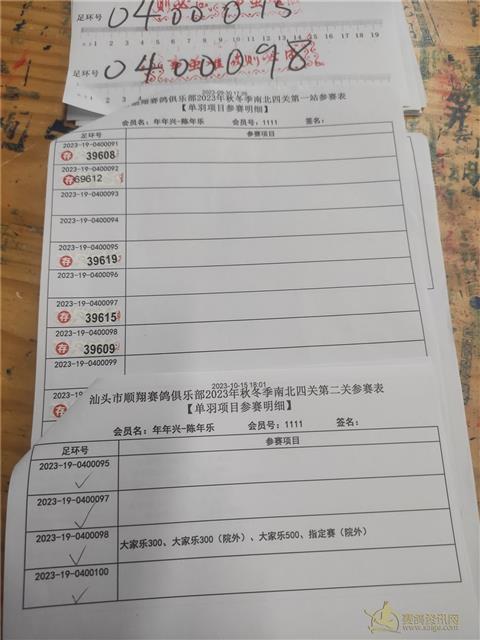 足环号
0400095
足环号
0400098
2023-09-30 17:36
翔赛鸽俱乐部2023年秋冬季南北四关第一站参赛表
【单羽项目参赛明细】
会员名：年年兴-陈年乐 会员号：1111 签名：
足环号 参赛项目
2023-19-0400091
存 39608
2023-19-0400092
存 69612
2023-19-0400093
2023-19-0400094
2023-19-0400095
存 39619
2023-19-0400096
2023-19-0400097
存 39615
2023-19-0400098
存 39609
2023-19-0400099
存
2023-10-15 18:01
汕头市顺翔赛鸽俱乐部2023年秋冬季南北四关第二关参赛表
【单羽项目参赛明细】
会员名：年年兴-陈年乐 会员号：1111 签名：
足环号 参赛项目
2023-19-0400095
2023-19-0400097
2023-19-0400098 大家乐300、大家乐300（院外）、大家乐500、指定赛（院外）
2023-19-0400100
赛鸽资讯网
www.saige.com